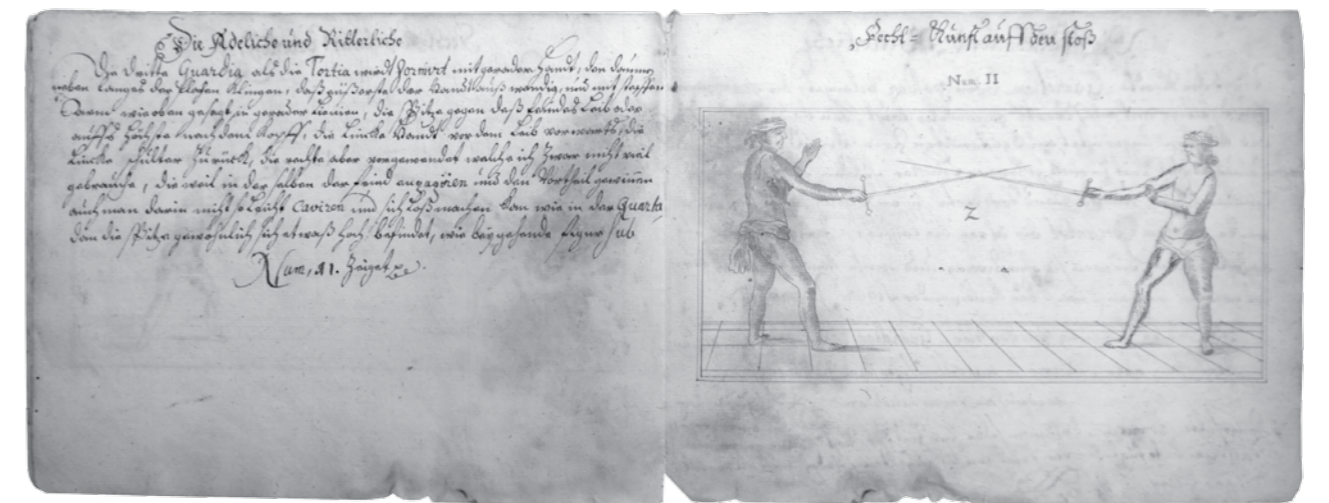 Die Adeliche und Ritterliche
Die dritte Guardia als die Tertia wirdt formirt mit gerader Handt, den daumen
neben langes der flachen Klingen, daß eüßerste der Handt auß wendig, und mit steiffen
Armb wie oben gesagt, in gerader Linien, die Spitze gegen deß feindes Leib oder
auffs höchste nach dem Kopff, die Lincke Handt vor dem Leib vorwarts, die
Lincke schulter zu rück, die rechte aber vorgewendet welche ich zwar nicht viel
gebrauche, die weil in der selben der feind angagiren und den Vortheil gewinnen
auch man darin nicht so leicht caviren und sich loß machen kan wie in der Quarta
dan die Spitze gewöhnlich sich etwaß hoch befindet, wie beygehende figur sub
Num, 11. Zeiget
Fecht-Kunst auff den stoß
Num II
2